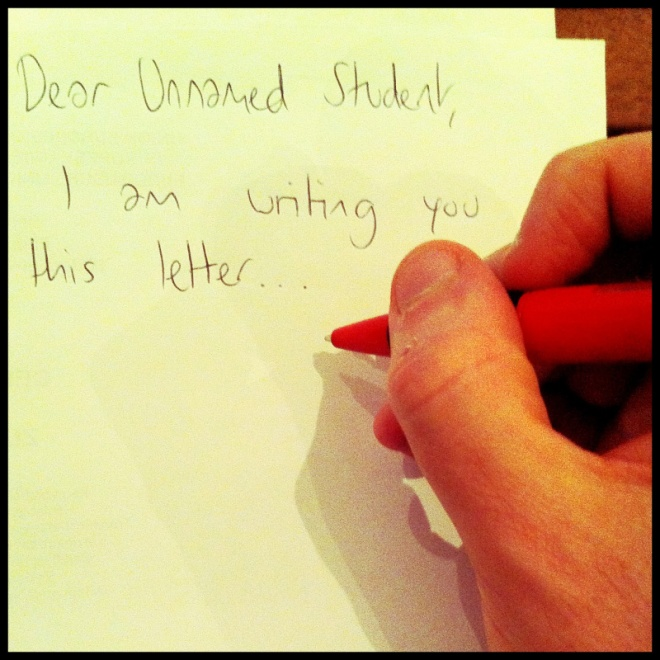 Dear Unnamed Student,
I am writing you
this letter...